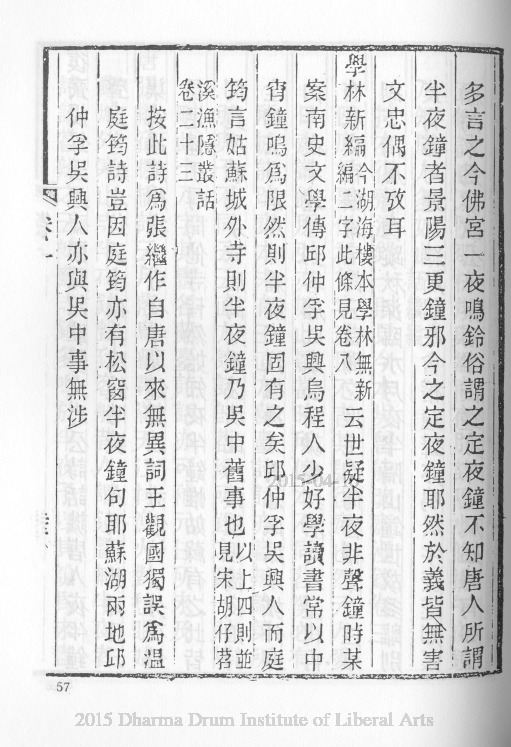 多言之今佛宮一夜鳴鈴俗謂之定夜鐘不知唐人所謂
半夜鐘者景陽三更鐘邪今之定夜鐘耶然於義皆無害
文忠偶不攷耳
學林新編今湖海樓本學林無新編二字此條見卷八云世疑半夜非聲鐘時某
案南史文學傳邱仲孚吳興烏程人少好學讀書常以中
宵鐘鳴爲限然則半夜鐘固有之矣邱仲孚吳興人而庭
筠言姑蘇城外寺則半夜鐘乃吳中舊事也以上四則並見宋胡仔苕
溪漁隱叢話卷二十三
按此詩爲張繼作自唐以來無異詞王觀國獨誤爲溫
庭筠詩豈因庭筠亦有松窗半夜鐘句耶蘇湖兩地邱
仲孚吳興人亦與吳中事無涉
57
2015-04-
2015 Dharma Drum Institute of Liberal Arts